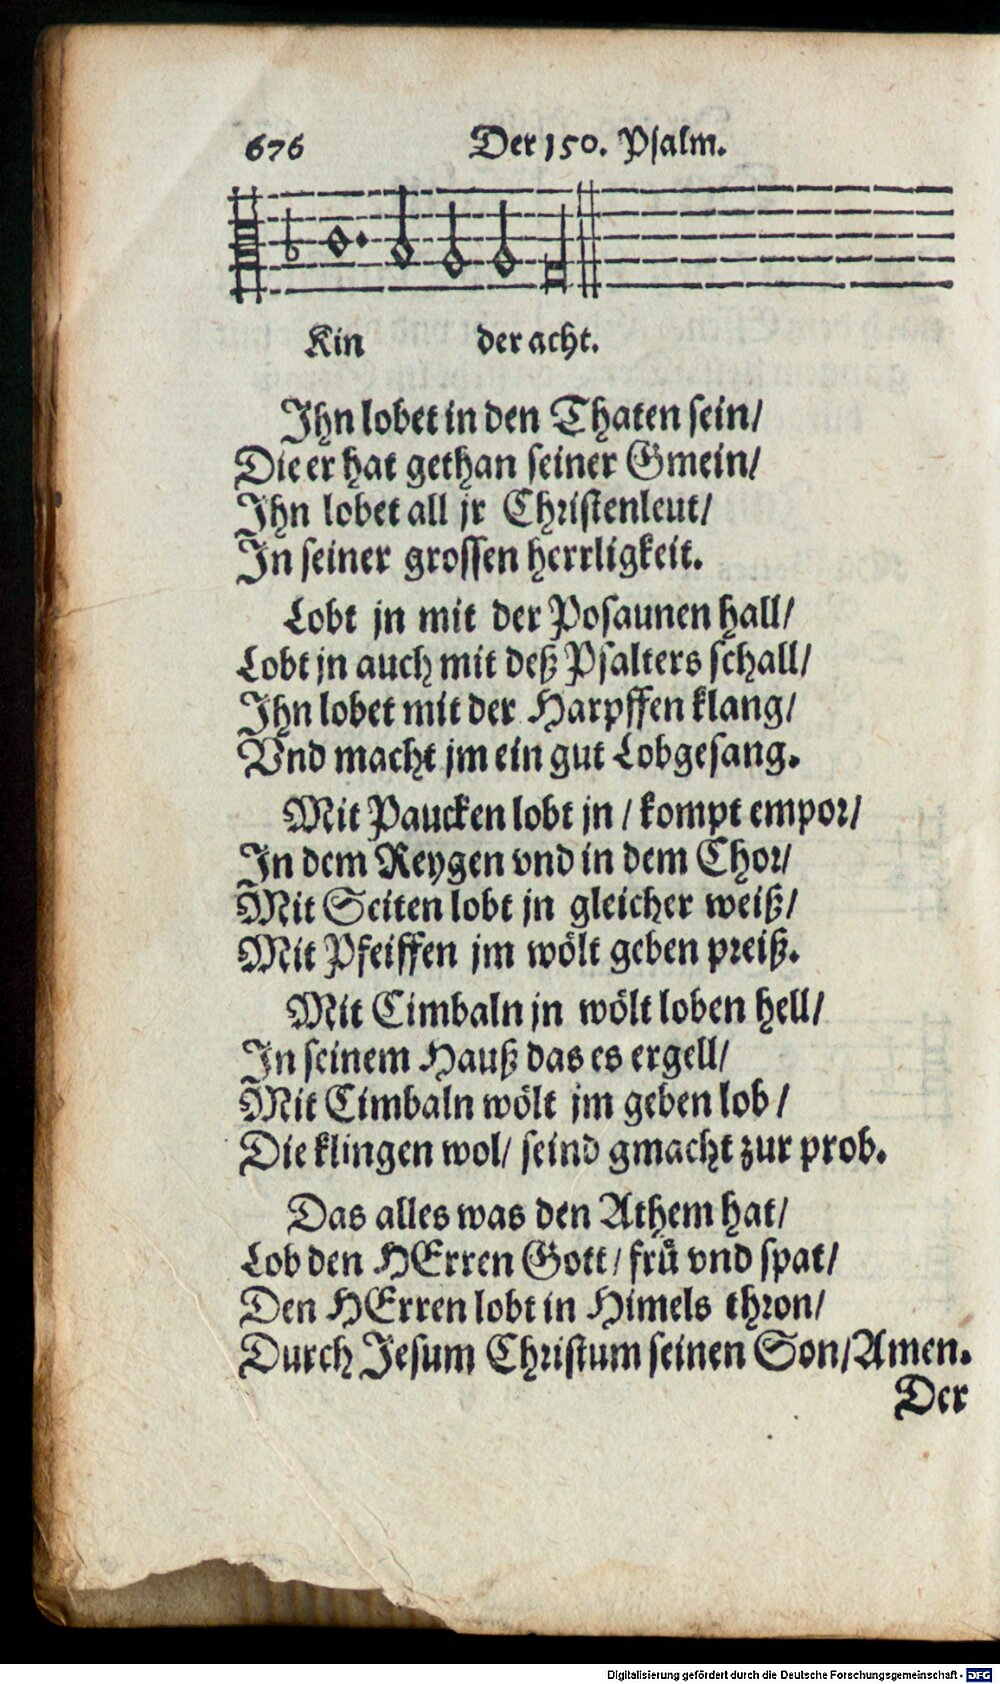 676 Der 150. Psalm.
Kin der acht.
Ihn lobet in den Thaten sein/
Die er hat gethan seiner Gmein/
Ihn lobet all jr Christenleut/
In seiner grossen herrligkeit.
Lobt jn mit der Posaunen hall/
Lobt jn auch mit deß Psalters schall/
Ihn lobet mit der Harpffen klang/
Vnd macht jm ein gut Lobgesang.
Mit Paucken lobt jn / kompt empor/
In dem Reygen vnd in dem Chor/
Mit Seiten lobt jn gleicher weiß/
Mit Pfeiffen jm wölt geben preiß.
Mit Cimbaln jn wölt loben hell/
In seinem Hauß das es ergell/
Mit Cimbaln wölt jm geben lob/
Die klingen wol/ seind gmacht zur prob.
Das alles was den Athem hat/
Lob den HErren Gott/ frü vnd spat/
Den HErren lobt in Himels thron/
Durch Jesum Christum seinen Son/ Amen.
Der
Digitalisierung gefördert durch die Deutsche Forschungsgemeinschaft - DFG